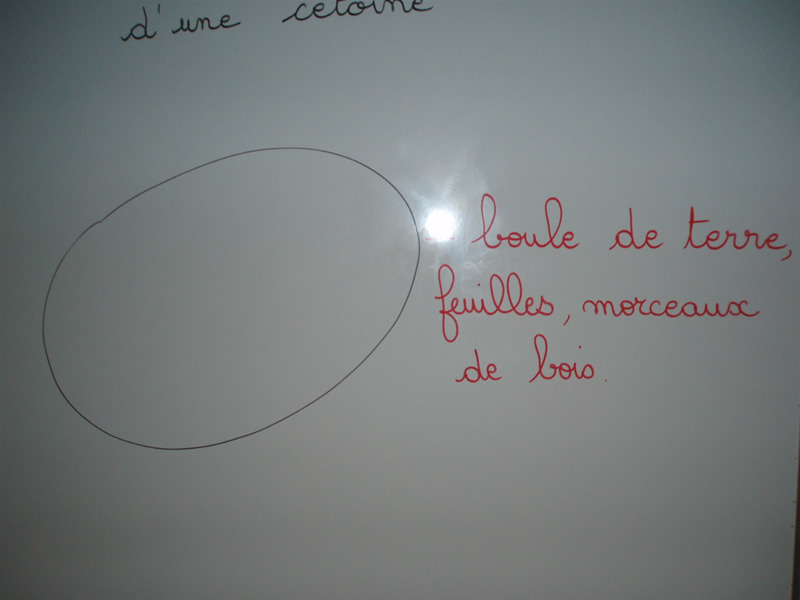 d'une cetoine
boule de terre,
feuilles, morceaux
de bois.